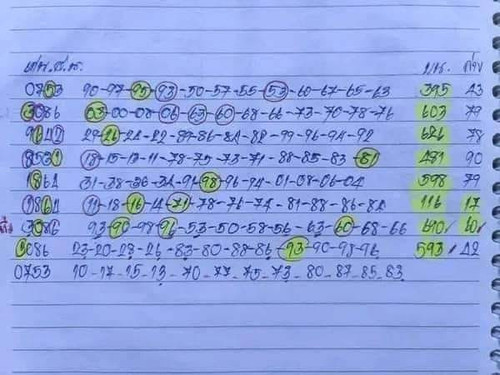 0753 90-97-95-93-50-57-55-53-60-67-65-63 395 43
3086 03-00-08-06-63-60-68-66-73-70-78-76 603 79
29-26-24-22-89-86-84-82-99-96-94-92 626 78
8531 18-15-13-11-78-75-73-71-88-85-83-81 90
1864 31-38-36-34-91-98-96-94-01-08-06-04 598 79
1864 11-18-16-14-71-78-76-74-81-88-86-84 116 17
3086 93-90-98-96-53-50-58-56-63-60-68-66 690 60
3086 23-20-28-26-83-80-88-86-93-90-98-96 593 42
0753 10-17-15-13-70-77-75-73-80-87-85-83